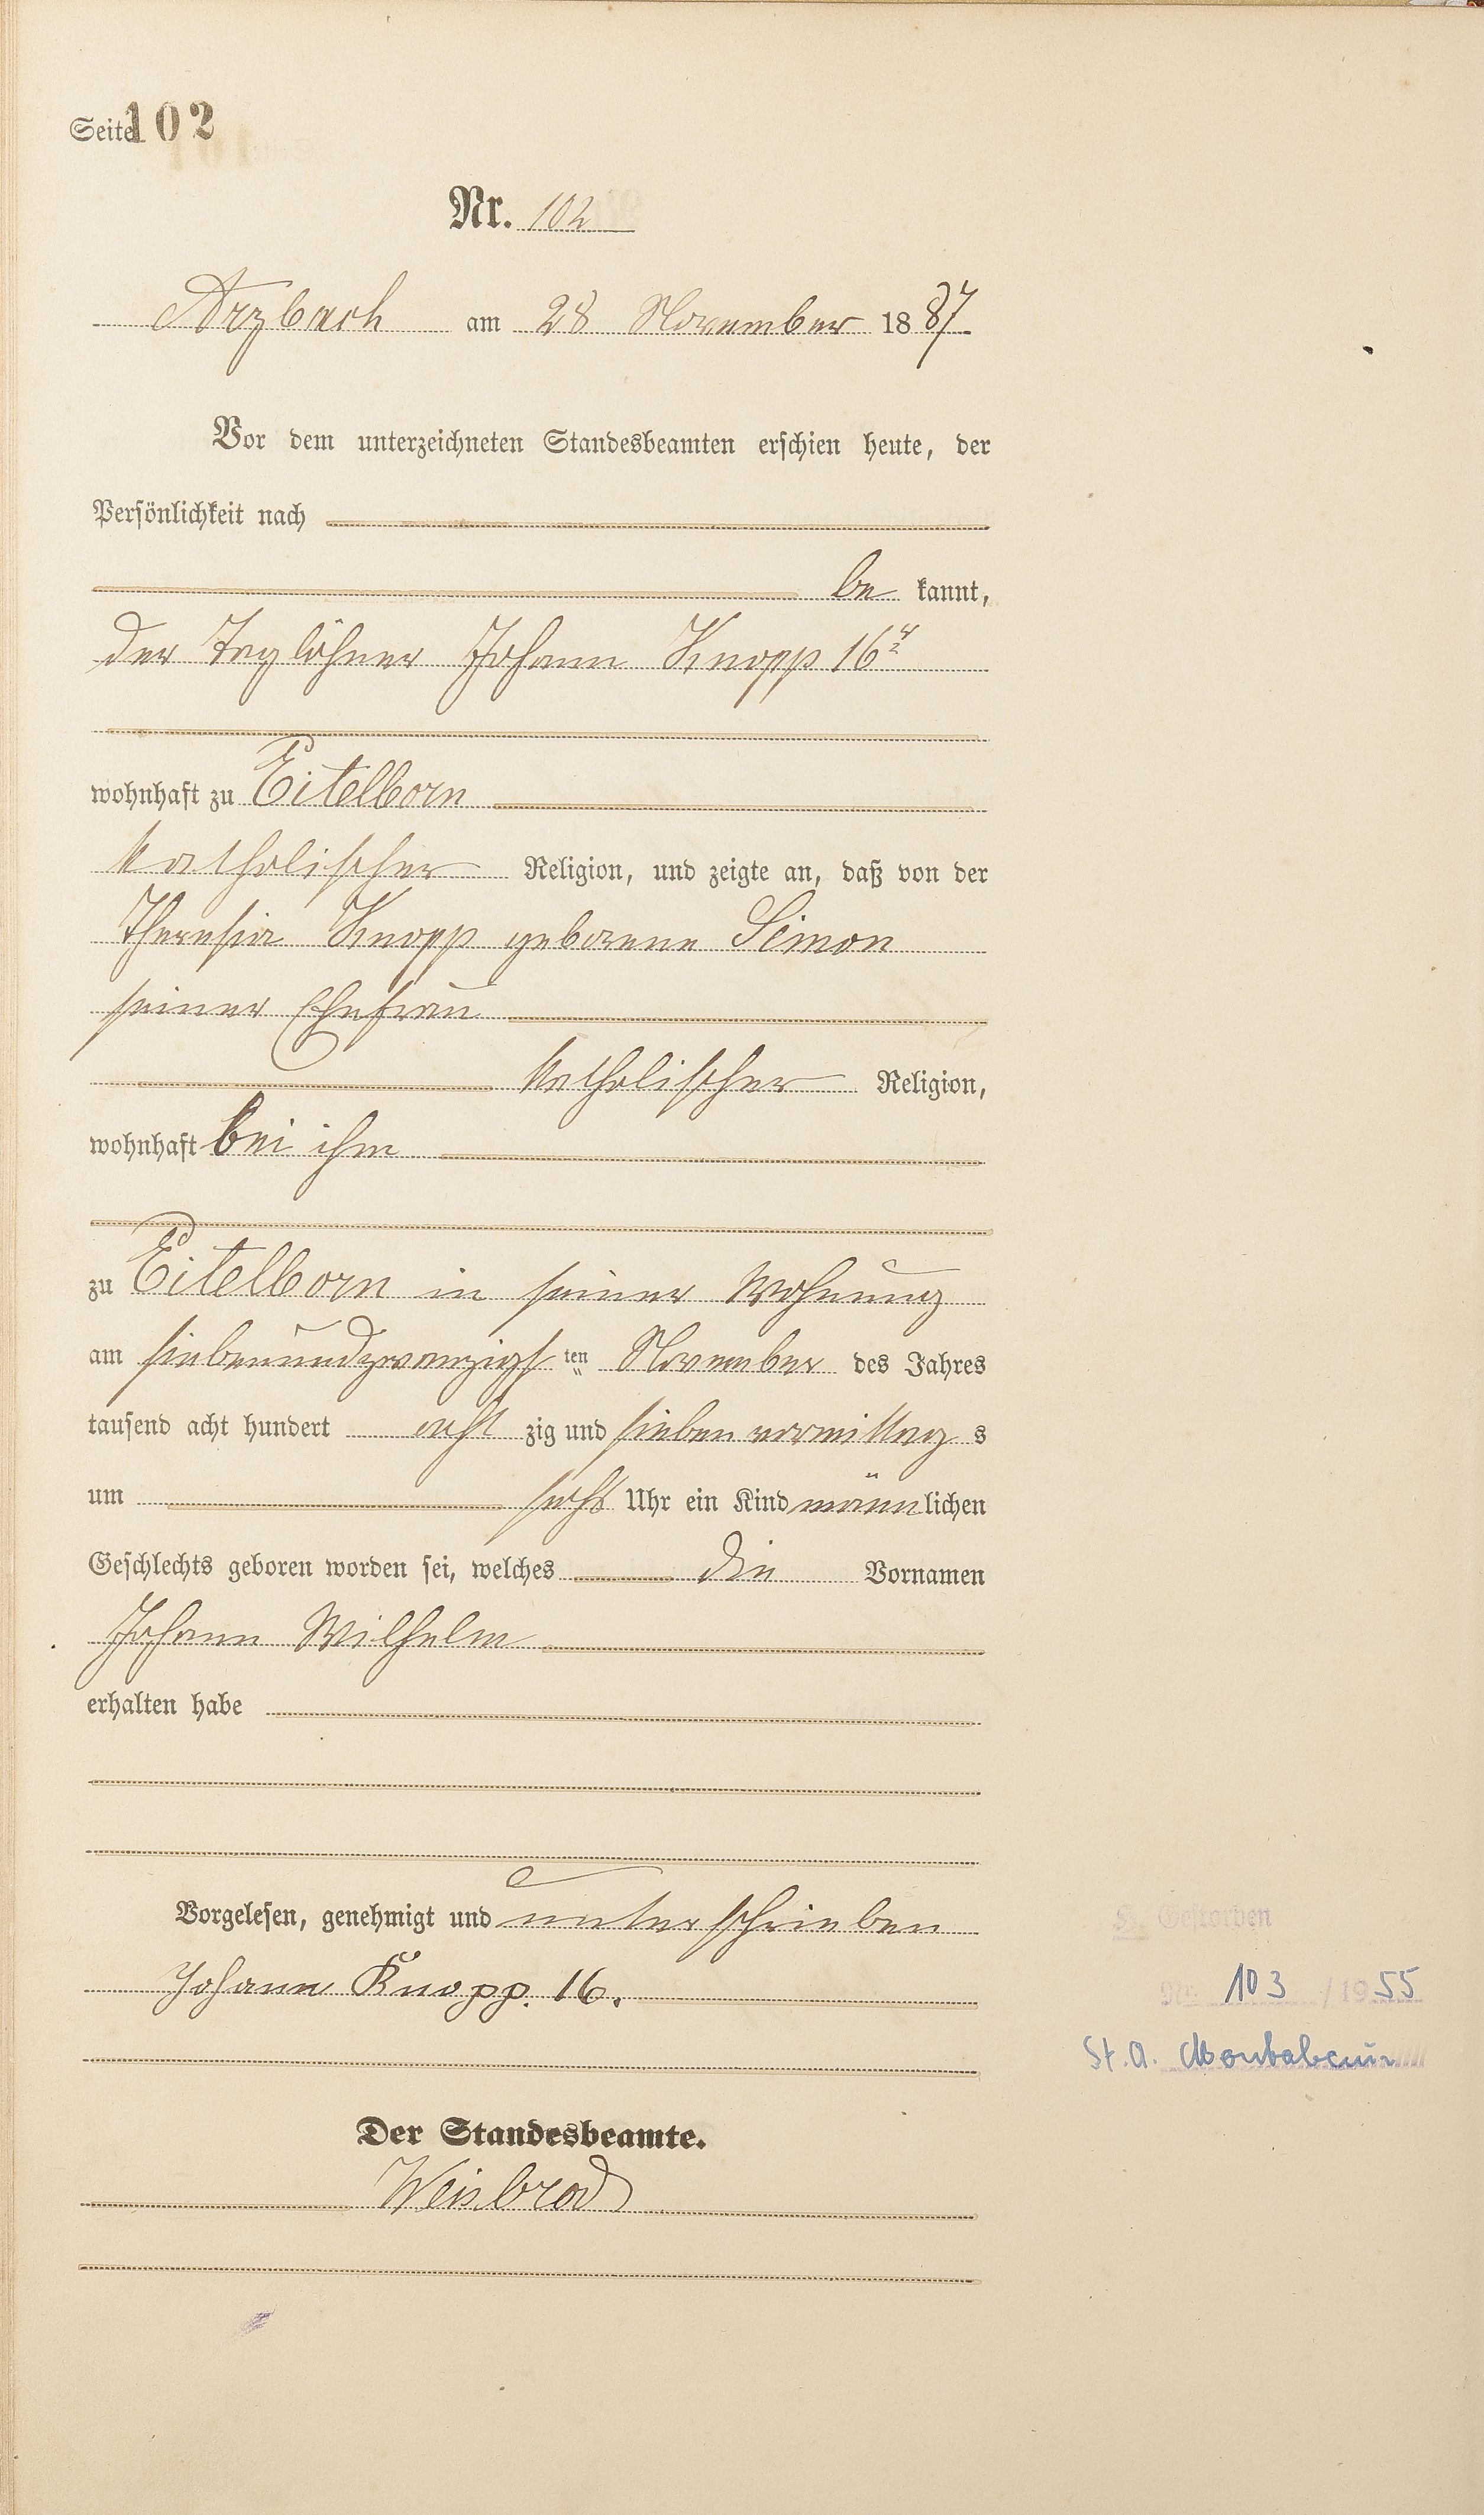 Seite 102
Nr. 102
Arzbach am 28 November 1887
Vor dem unterzeichneten Standesbeamten erschien heute, der
Persönlichkeit nach
be kannt,
der Taglöhner Johann Knopp 16r
wohnhaft zu Eitelborn
katholischer Religion, und zeigte an, daß von der
Theresia Knopp geborene Simon
seiner Ehefrau
katholischer Religion,
wohnhaft bei ihm
zu Eitelborn in seiner Wohnung
am siebenundzwanzigsten November des Jahres
tausend acht hundert acht zig und sieben vormittag s
um sechs Uhr ein Kind männlichen
Geschlechts geboren worden sei, welches die Vornamen
Johann Wilhelm
erhalten habe
Vorgelesen, genehmigt und unterschrieben
Johann Knopp. 16.
Der Standesbeamte.
Weisbrod
H. Gestorben
Nr. 103 /1955
St. A. Montabaur